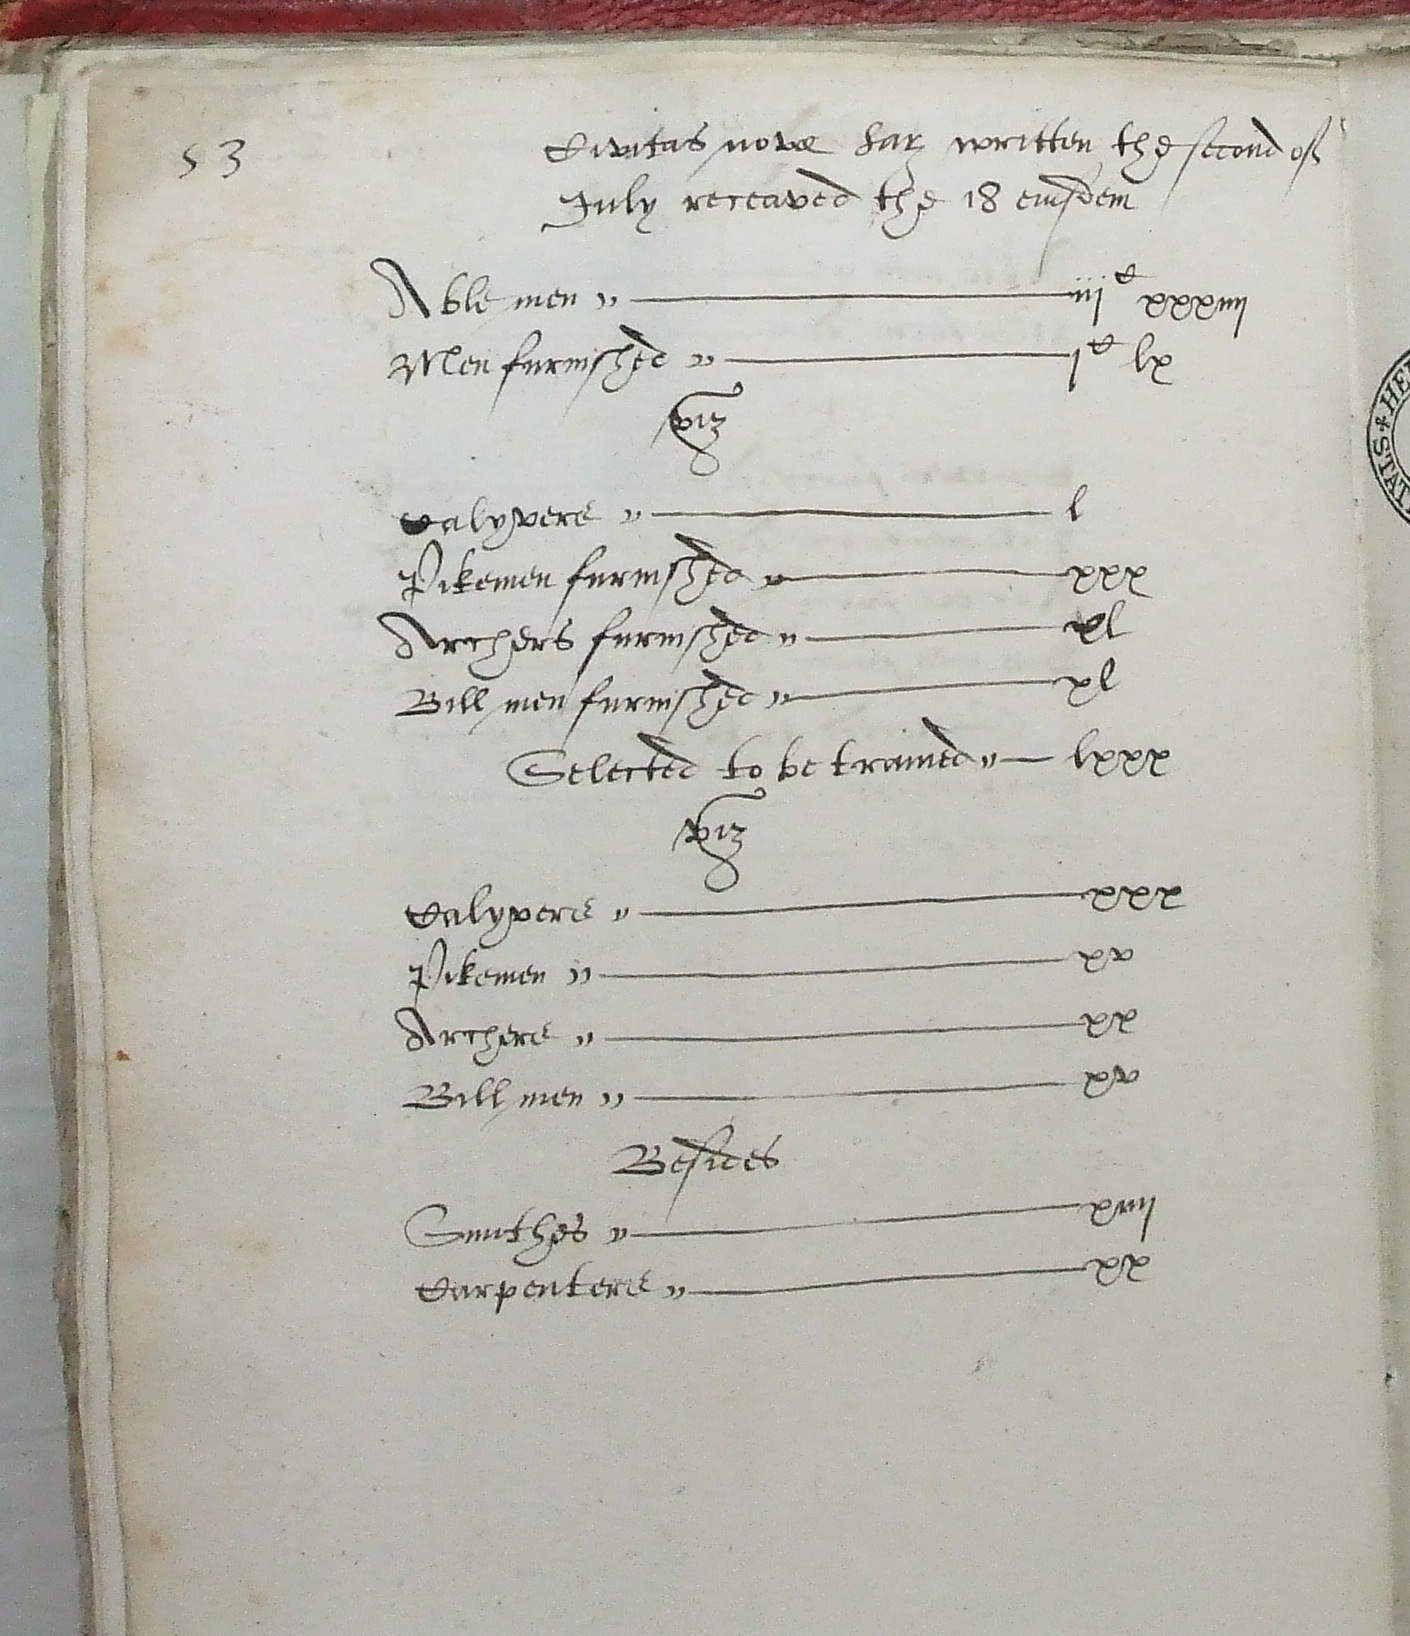 53
Civitas nove Sar. written the second of
July receaved the 18 eiusdem
Able men ,, iii^C xxxiiij
Men furnished ,, j^C lx
viz
Calyvers ,, l
Pikemen furnished ,, xxx
Archers furnished ,, xl
Bill men furnished ,, xl
Selected to be trained ,, lxxx
viz
Calyvers ,, xxx
Pikemen ,, xv
Archers ,, xx
Bill men ,, xv
Besides
Smithes ,, xiiij
Carpenters ,, xx